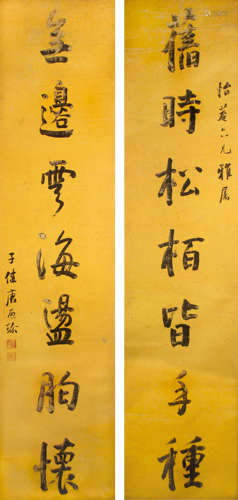 舊時松柏皆手種
治菴六兄雅屬
無邊雲海盪胸懷
子健唐